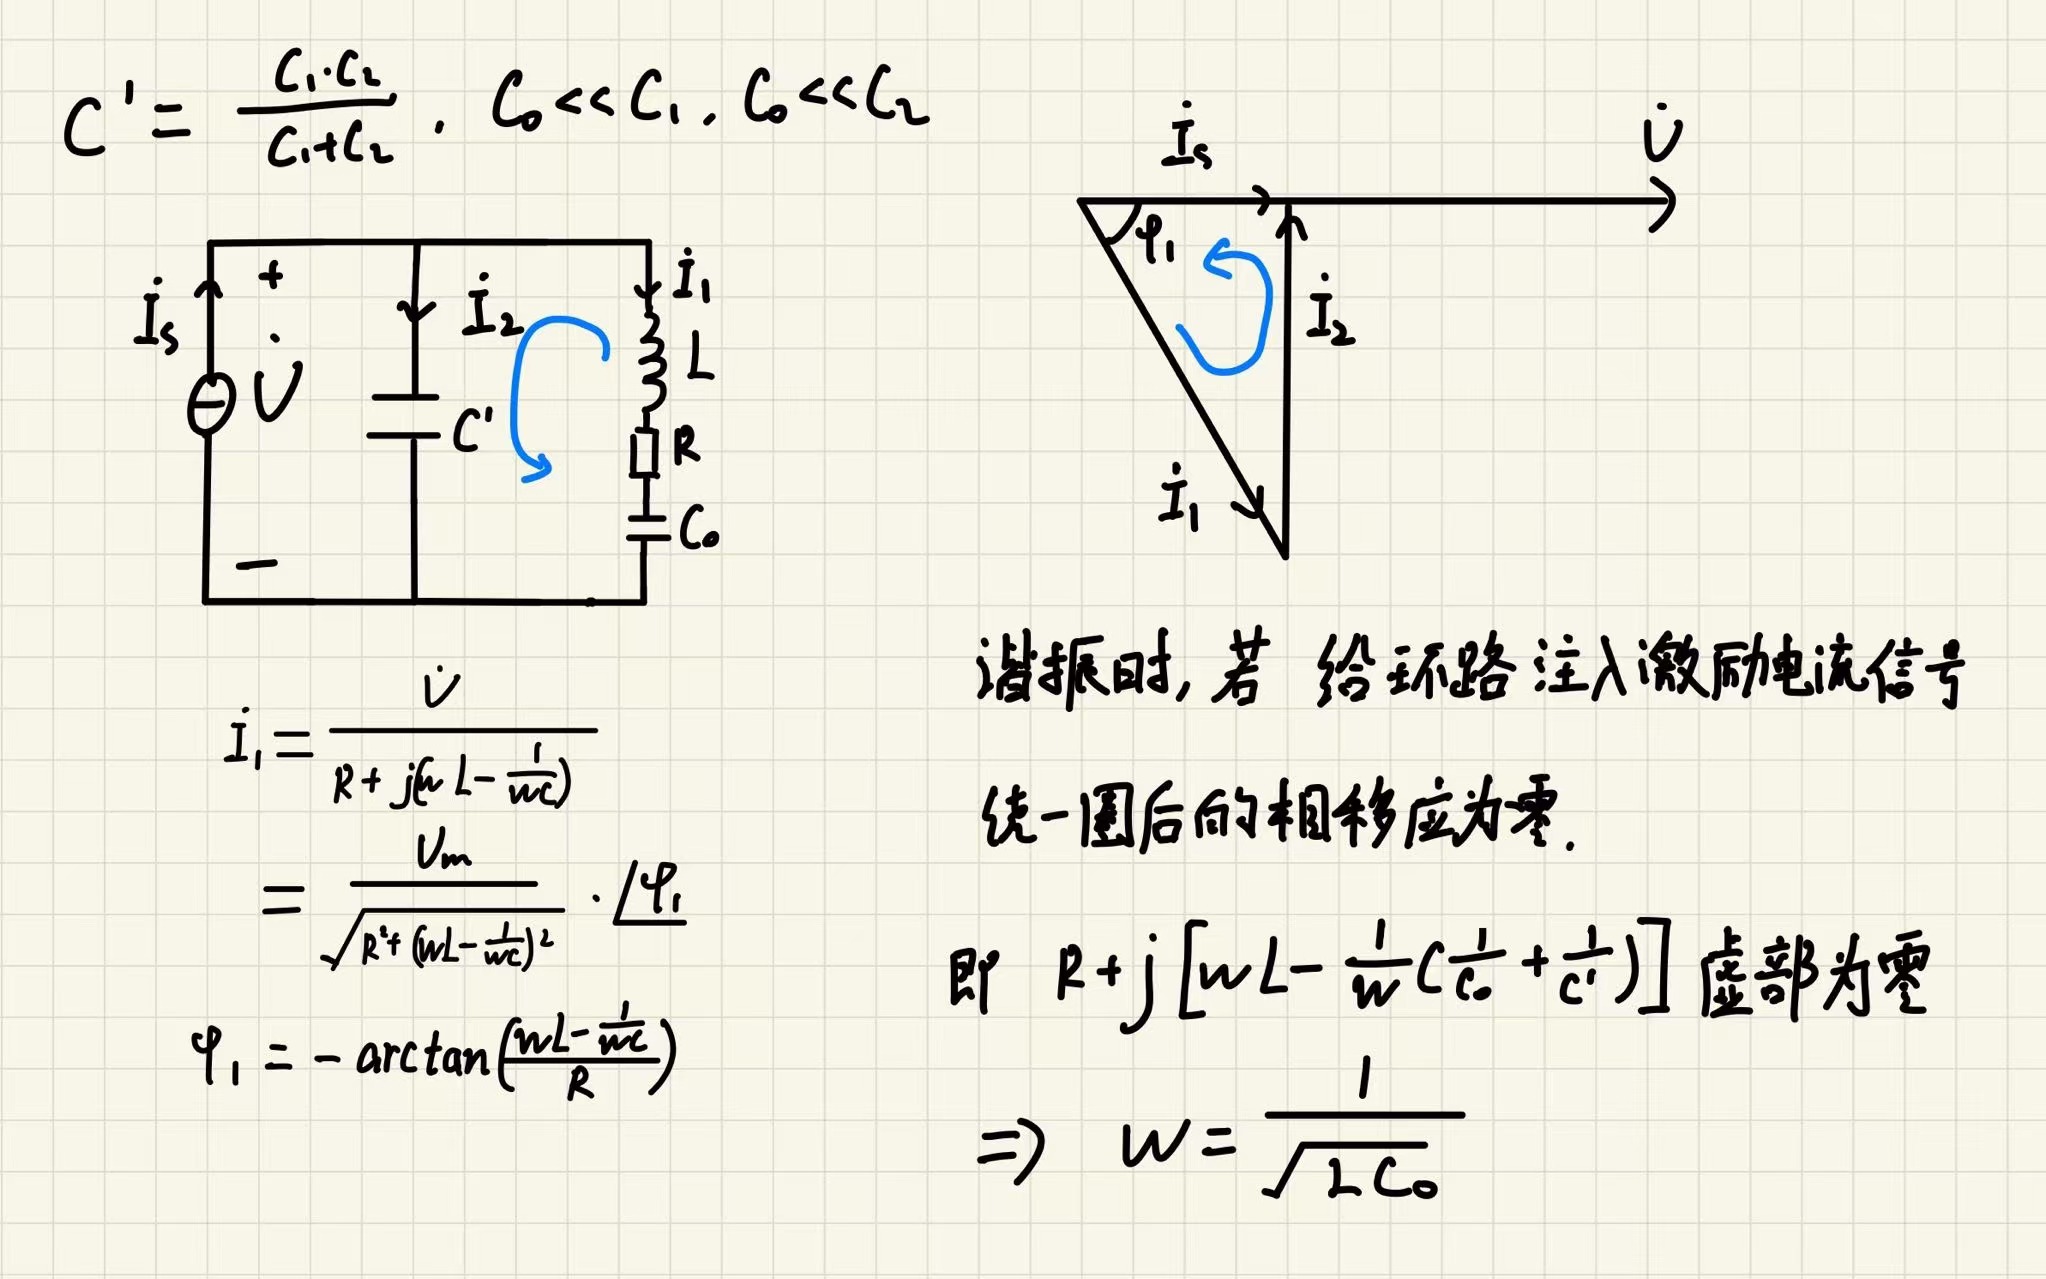 C' = C₁·C₂ / (C₁+C₂) . C₀<<C₁, C₀<<C₂
İs
+
U̇
−
İ₂
C'
İ₁
L
R
C₀
İ₁ = U̇ / (R + j(wL − 1/wC))
= Um / √(R² + (wL − 1/wC)²) · ∠φ₁
φ₁ = − arctan((wL − 1/wC) / R)
İs
U̇
φ₁
İ₂
İ₁
谐振时, 若 给环路注入激励电流信号
绕一圈后的相移应为零.
即 R + j[wL − 1/w(1/C₀ + 1/C')] 虚部为零
⇒ w = 1 / √(LC₀)